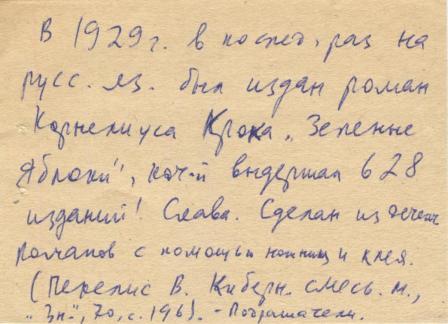 В 1929 г. в послед. раз на
русс. яз. был издан роман
Корнелиуса Крока „Зеленые
яблоки", кот-й выдержал 628
изданий! Слава. Сделан из
романов с помощью ножниц и клея.
(Перепис В. Киберн. смесь. М.,
„Зн.", 70, с. 196). - Подражатели.